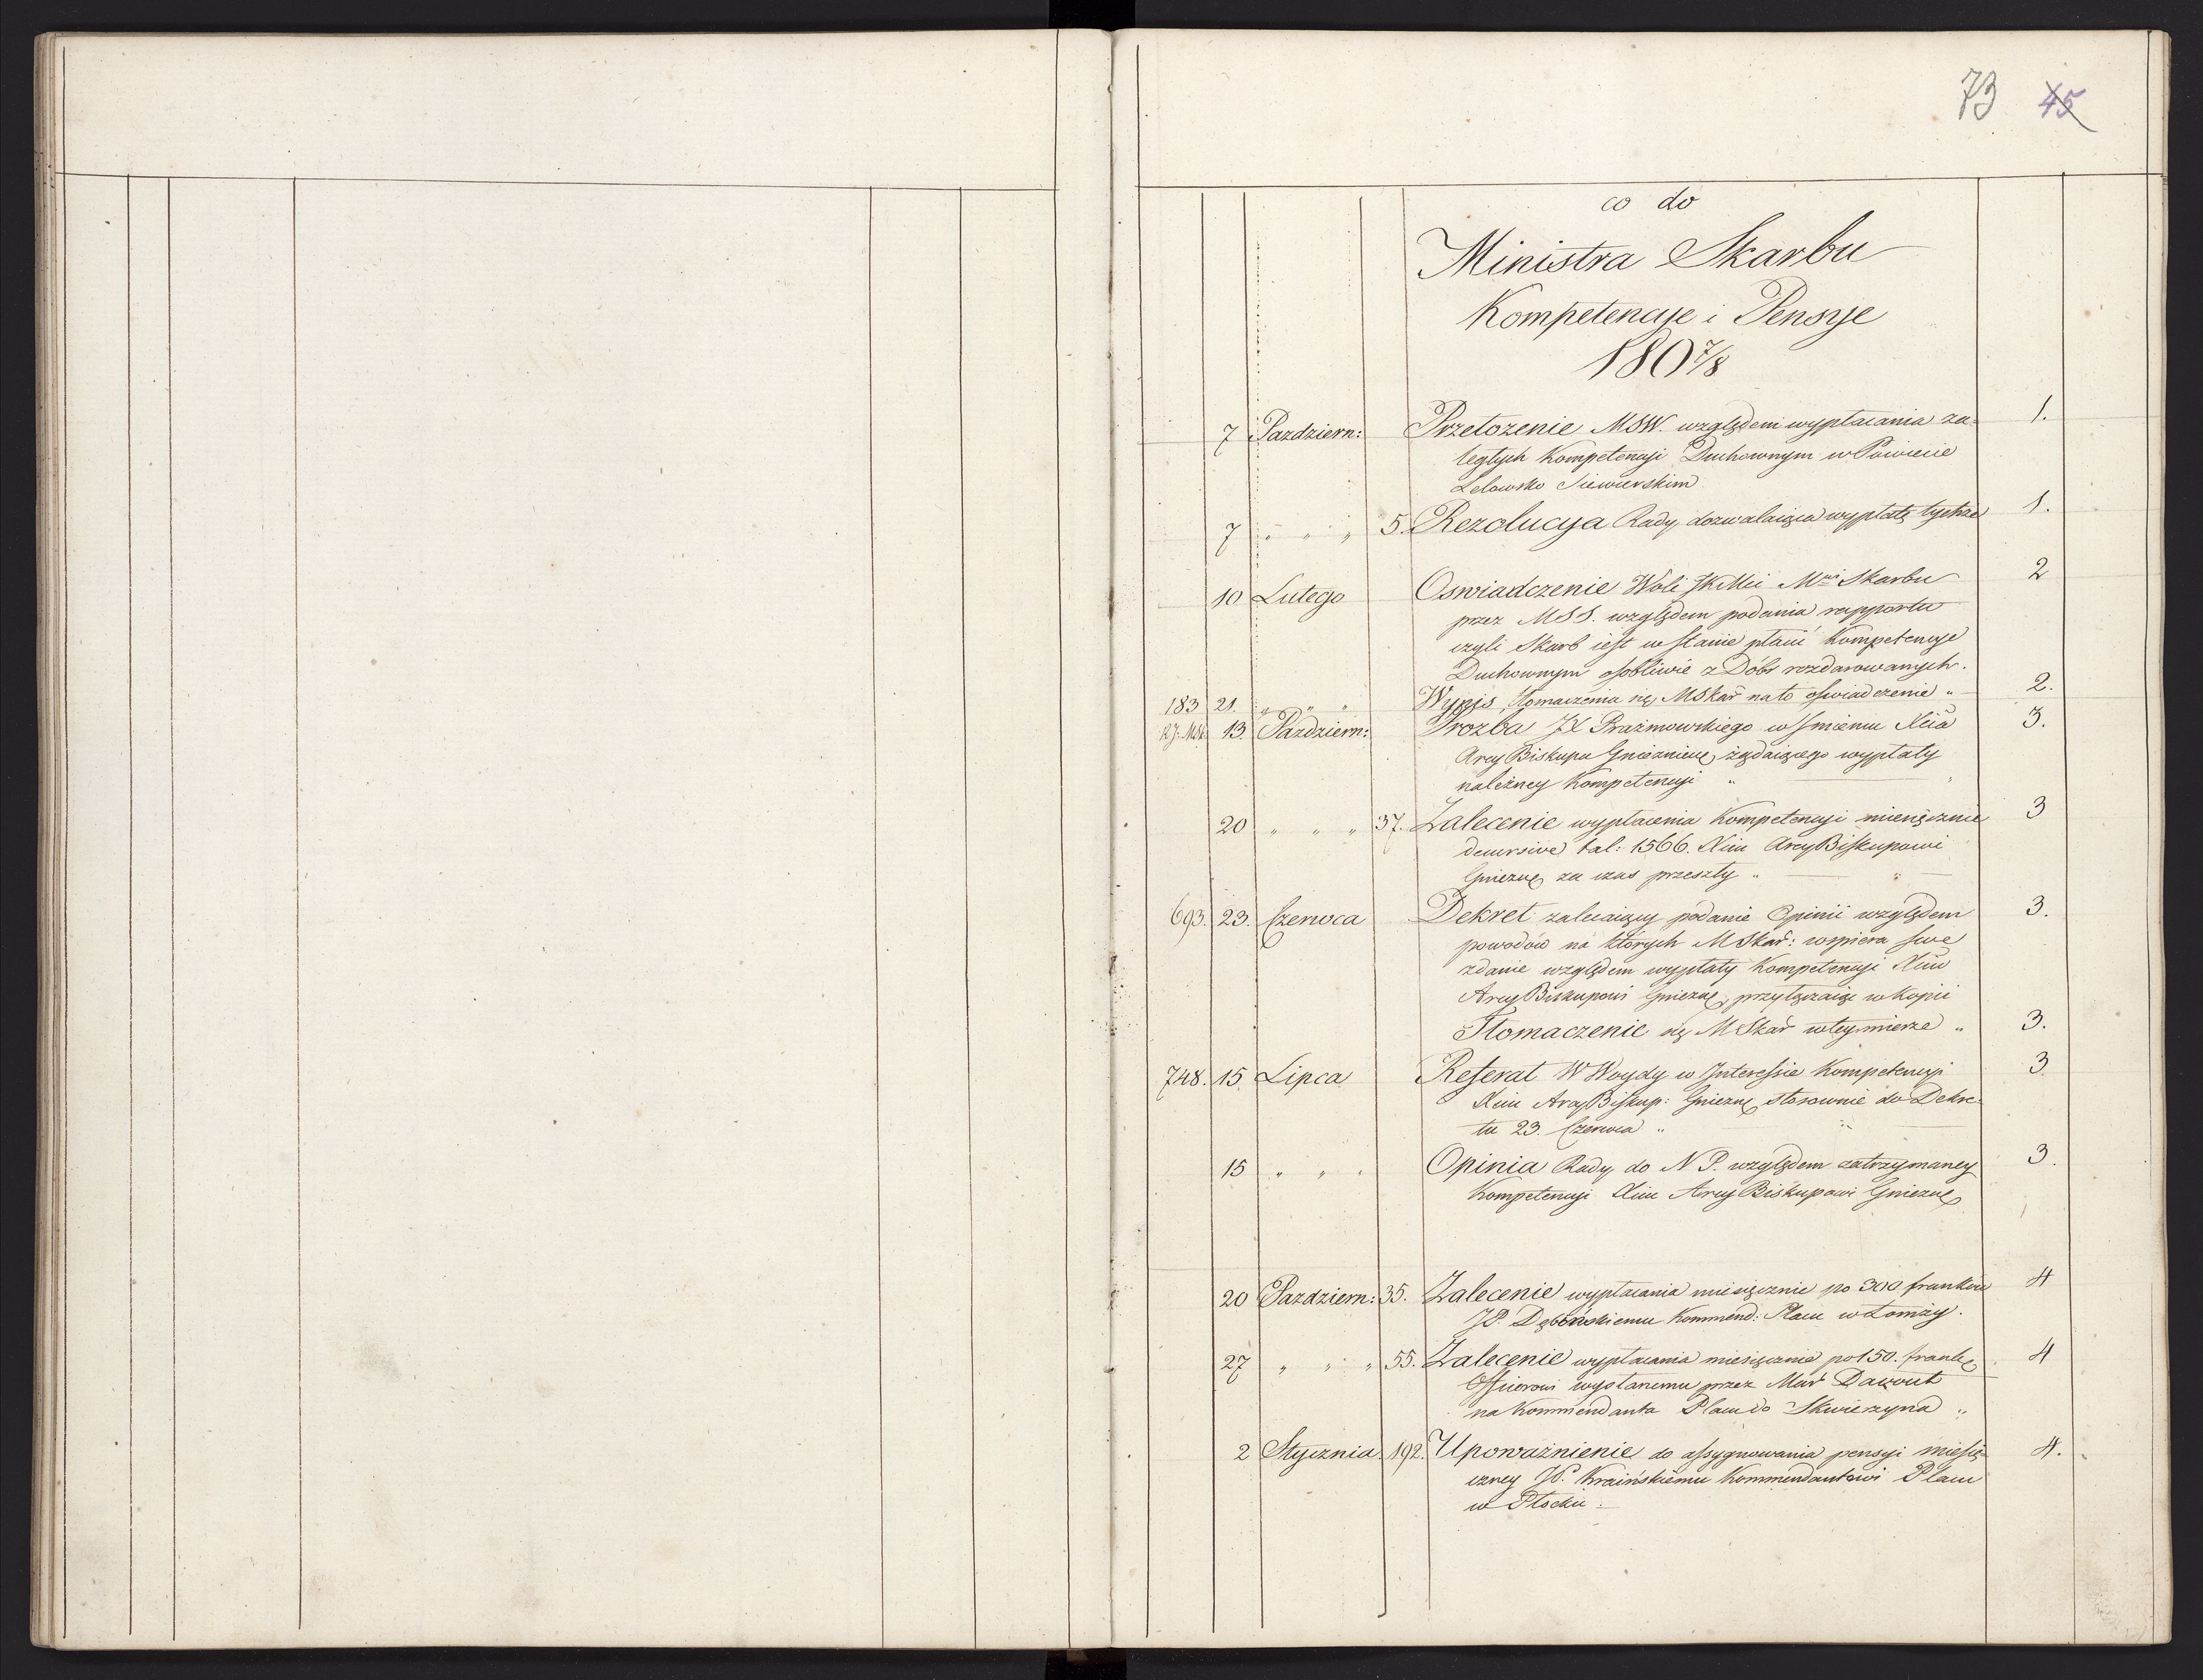 73 45
co do
Ministra Skarbu
Kompetencye i Pensye
1807/8
7 Pazdziern: Przełożenie MSW. względem wypłacania za= 1.
ległych Kompetencyi Duchownym w Powiecie
Lelowsko Siewierskim
7 " " " 5. Rezolucya Rady dozwalaiąca wypłatę tychże 1.
10 Lutego Oswiadczenie Woli JKMci Mwi Skarbu 2
przez MSS. względem podania rapportu
czyli Skarb iest w stanie płacić Kompetencye
Duchownym osobliwie z Dóbr rozdarowanych.
183 21. " " " Wypis tłomaczenia się MSkar na to oswiadczenie " 2.
13. Pazdziern: Prozba JX Prażmowskiego w Jmieniu Xcia 3.
Arcy Biskupa żądaiącego wypłaty
należney Kompetencyi "
20 " " " 37. Zalecenie wypłacenia Kompetencyi miesięcznie 3
decursive tal: 1566. Xciu ArcyBiskupowi
Gniezn za czas przeszły "
693. 23. Czerwca Dekret zalecaiący podanie Opinii względem 3.
powodów na których MSkar: wspiera swe
zdanie względem wypłaty Kompetencyi Xciu
Arcy Biskupowi Gniezn przyłączaiąc w Kopii
Tłomaczenie się MSkar w tey mierze " 3.
748. 15. Lipca Referat W Woydy w Interessie Kompetencyi 3
Xciu Arcy Biskup: Gniezn stosownie do Dekre=
tu 23. Czerwca "
15 " " " Opinia Rady do N P. względem zatrzymaney 3.
Kompetencyi Xciu Arcy Biskupowi Gniezn
20 Pazdziern: 35. Zalecenie wypłacania miesięcznie po 300 franków 4
JP. Dębińskiemu Kommend: Placu w Łomży.
27 " " " 55. Zalecenie wypłacania miesięcznie po 150. frank 4
Officerowi wysłanemu przez Mar Davout
na Kommendanta Placu do Skwierzyna "
2 Stycznia 192. Upoważnienie do assygnowania pensyi miesię= 4.
czney JP. Kraińskiemu Kommendantowi Placu
w Płocku.